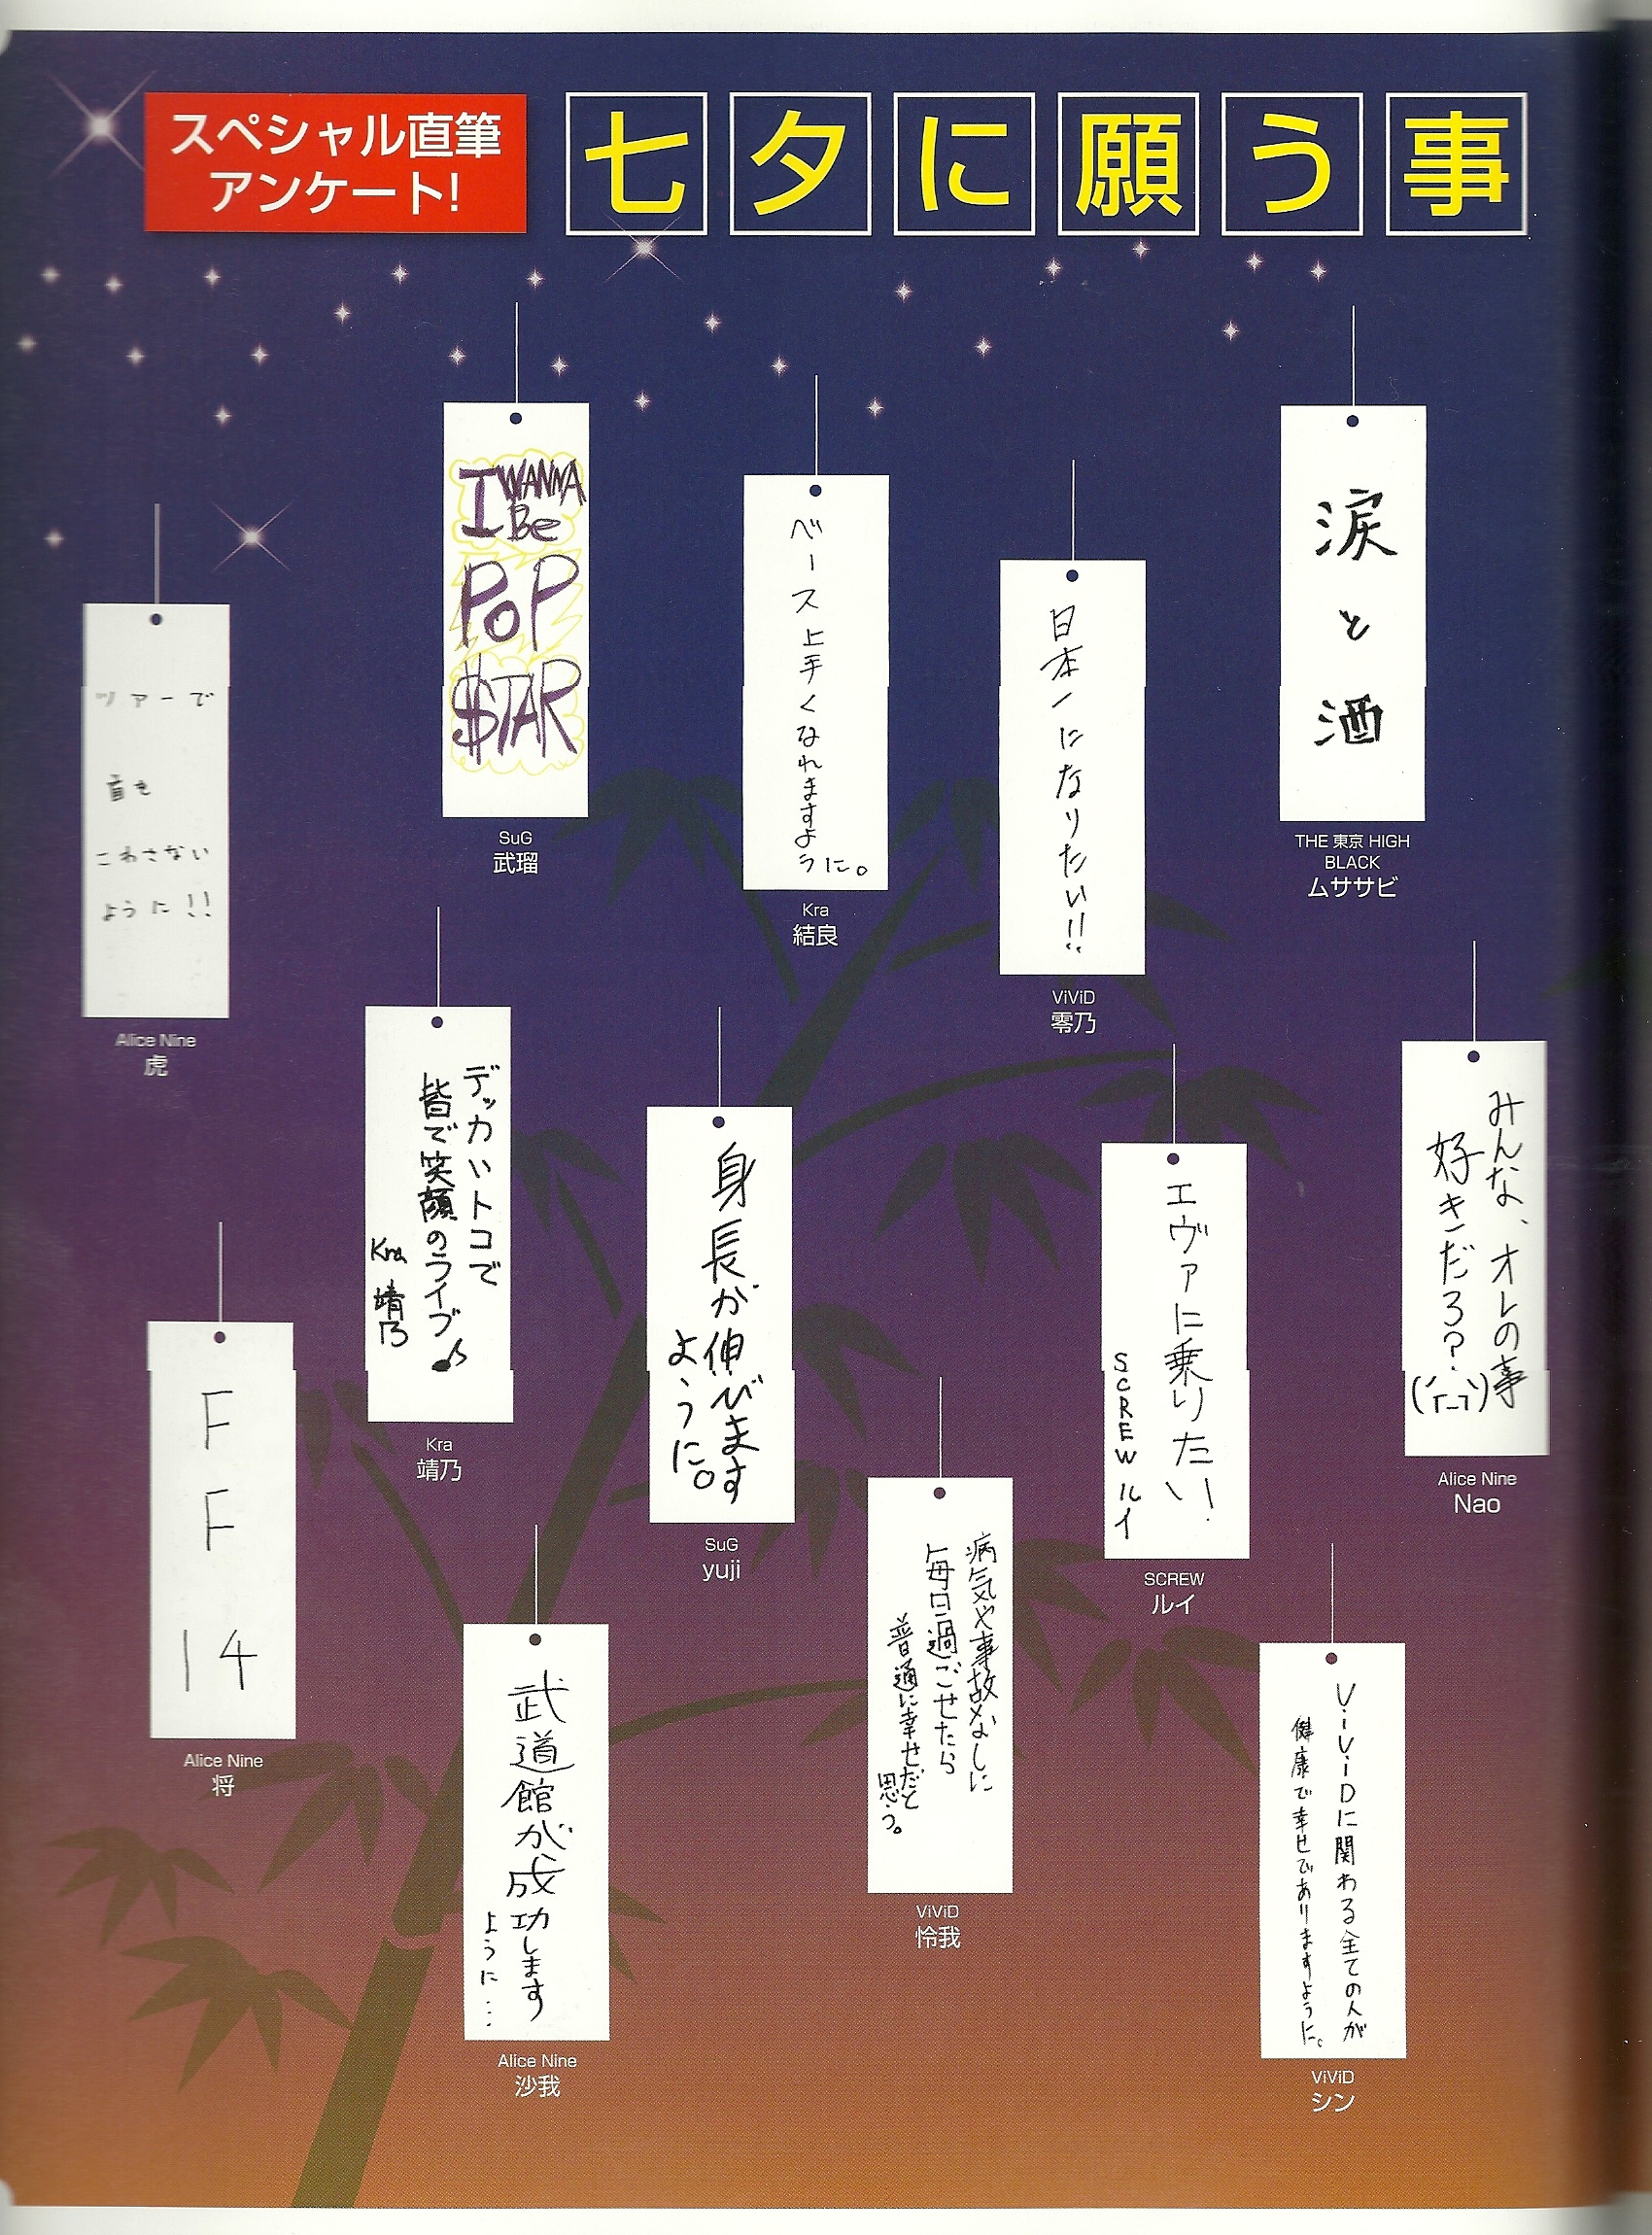 スペシャル直筆
アンケート!
七夕に願う事
ツアーで
首を
こわさない
ように!!
Alice Nine
虎
I WANNA
Be
POP
$TAR
SuG
武瑠
ベース上手くなれますように。
Kra
結良
日本一になりたい!!
ViViD
零乃
涙と酒
THE 東京 HIGH
BLACK
ムササビ
デッカいトコで
皆で笑顔のライブ♪
Kra 靖乃
Kra
靖乃
身長が伸びます
ように。
SuG
yuji
エヴァに乗りたい!
SCREW ルイ
SCREW
ルイ
みんな、オレの事
好きだろ?
Alice Nine
Nao
FF14
Alice Nine
将
武道館が成功します
ように…
Alice Nine
沙我
病気や事故なしに
毎日過ごせたら
普通に幸せだと
思う。
ViViD
怜我
ViViDに関わる全ての人が
健康で幸せでありますように。
ViViD
シン